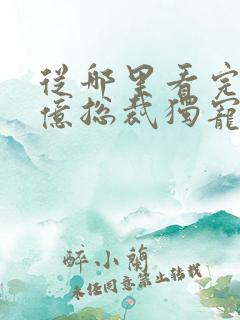 從哪里看完
億总裁獨寵
醉小蘭
未经同意禁止转载